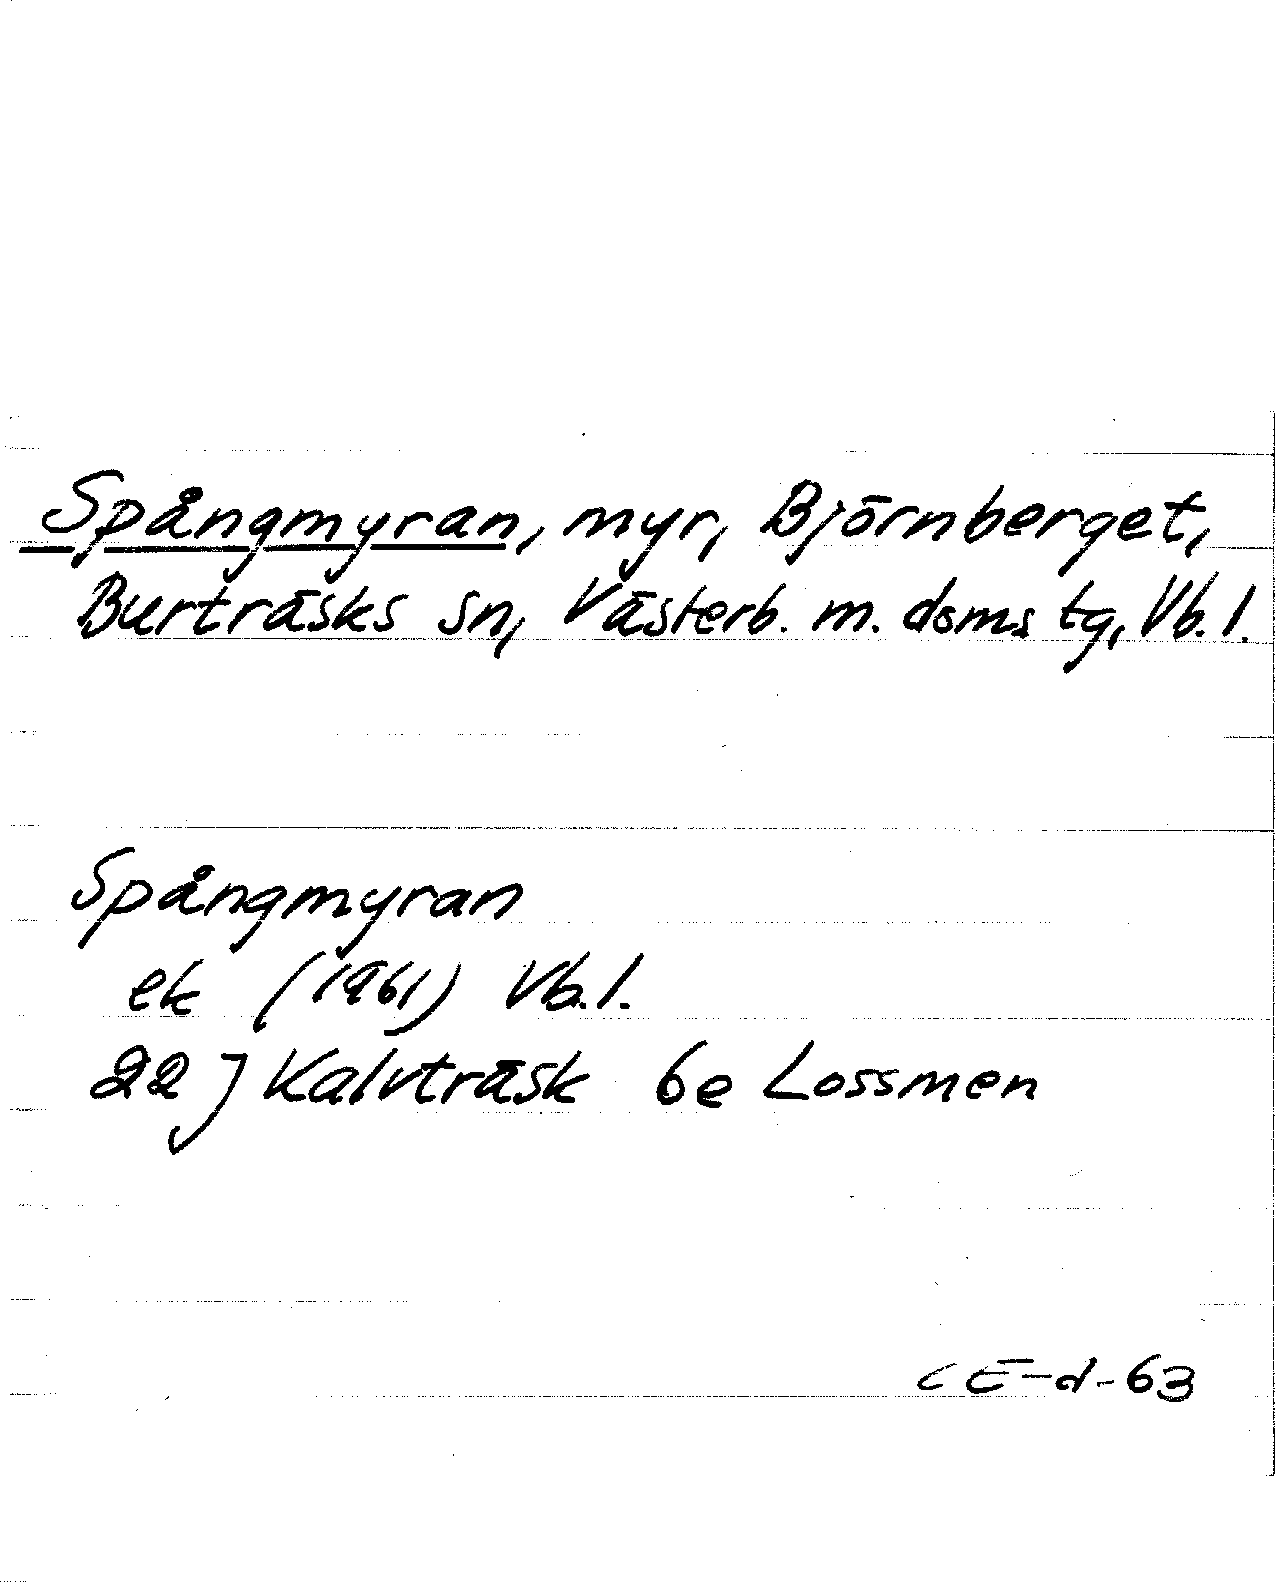 Spångmyran, myr, Björnberget,
Burträsks sn, Västerb. m. doms tg, Vb. l.
Spångmyran
ek (1961) Vb. l.
22 J Kalvträsk 6e Lossmen
CE-d-63